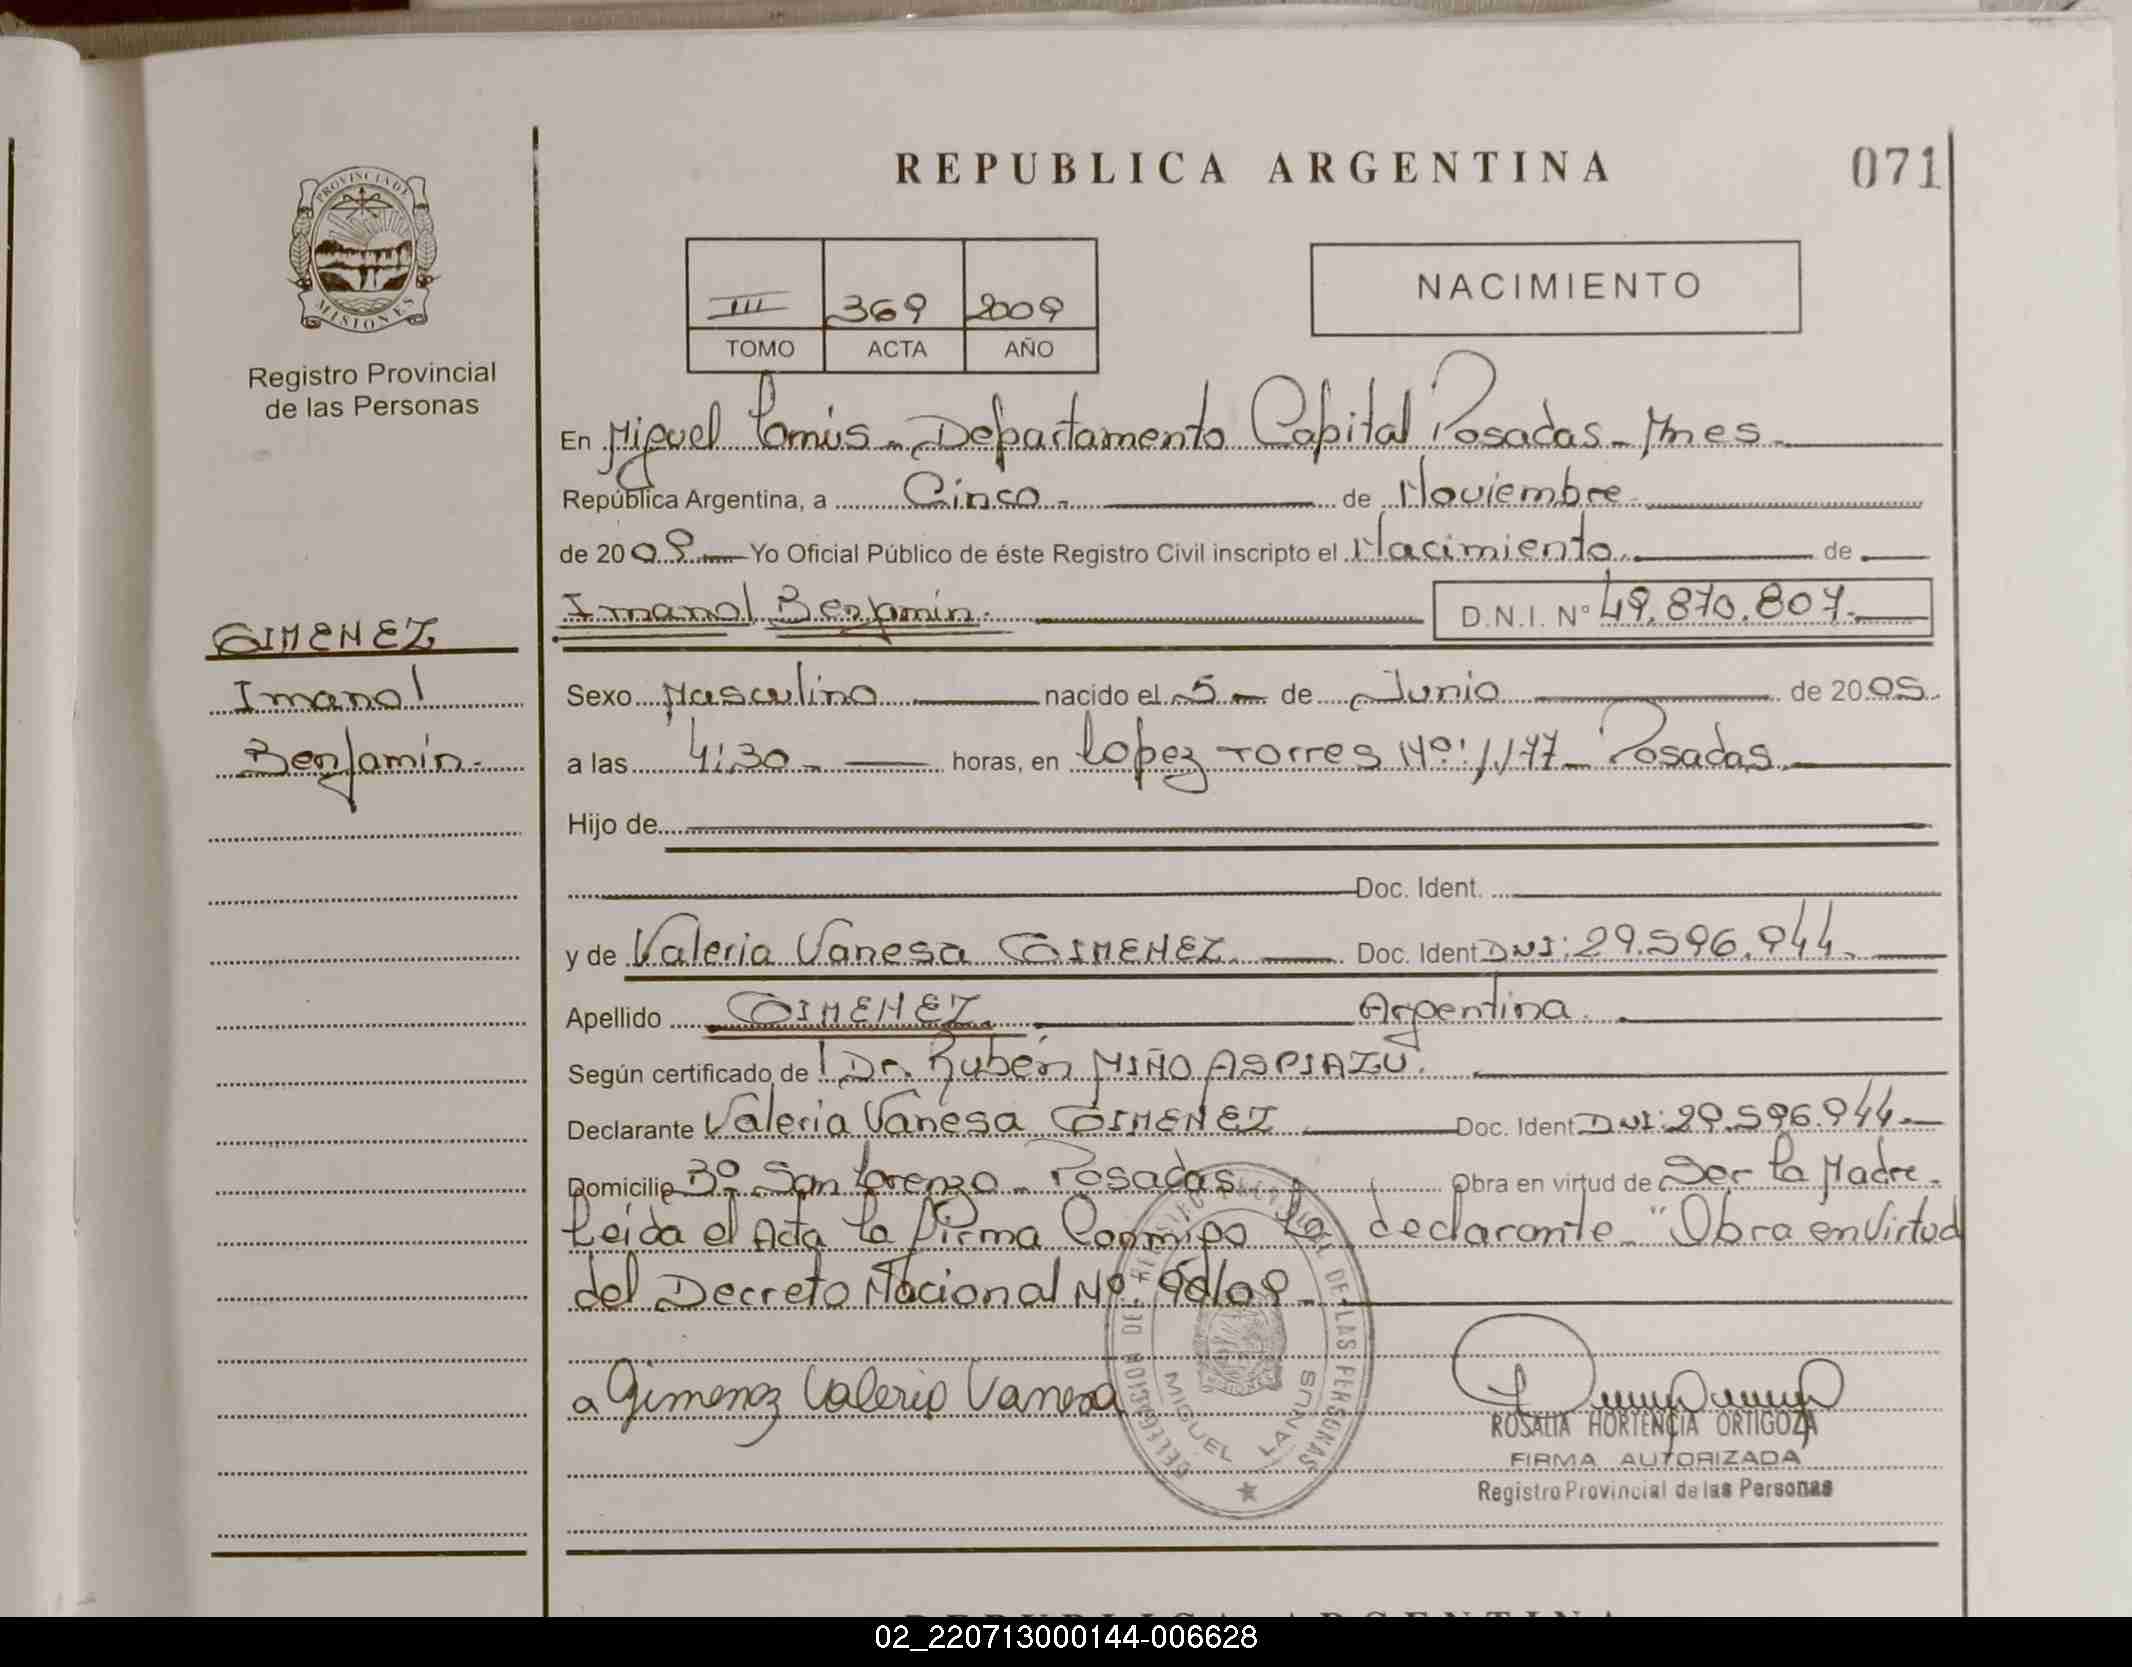 REPUBLICA ARGENTINA
071
PROVINCIA DE
MISIONES
Registro Provincial
de las Personas
III 369 2009
TOMO ACTA AÑO
NACIMIENTO
En Miguel Lanús - Departamento Capital Posadas - Mnes -
República Argentina, a Cinco - de Noviembre
de 2009 Yo Oficial Público de éste Registro Civil inscripto el Nacimiento de
Imanol Benjamín. D.N.I. N° 49.870.807.
GIMENEZ
Imanol
Benjamín.
Sexo Masculino nacido el 5 de Junio de 2005
a las 4:30 horas, en Lopez Torres Nº: 1177 - Posadas
Hijo de
Doc. Ident.
y de Valeria Vanesa GIMENEZ Doc. Ident DNI: 29.596.944
Apellido GIMENEZ Argentina
Según certificado de Dr. Rubén MIÑO ASPIAZU.
Declarante Valeria Vanesa GIMENEZ Doc. Ident DNI: 29.596.944
Domicilio Bº San Lorenzo - Posadas Obra en virtud de Ser la Madre.
Leida el Acta la firma Conmigo la declarante - "Obra en Virtud
del Decreto Nacional Nº: 90/09 -
Gimenez Valeria Vanesa
DELEGACION DE REGISTRO PROVINCIAL DE LAS PERSONAS
MIGUEL LANUS
ROSALIA HORTENCIA ORTIGOZA
FIRMA AUTORIZADA
Registro Provincial de las Personas
REPUBLICA ARGENTINA
02_220713000144-006628